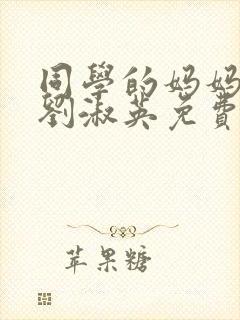 同學的媽媽
劉淑英免費
苹果糖